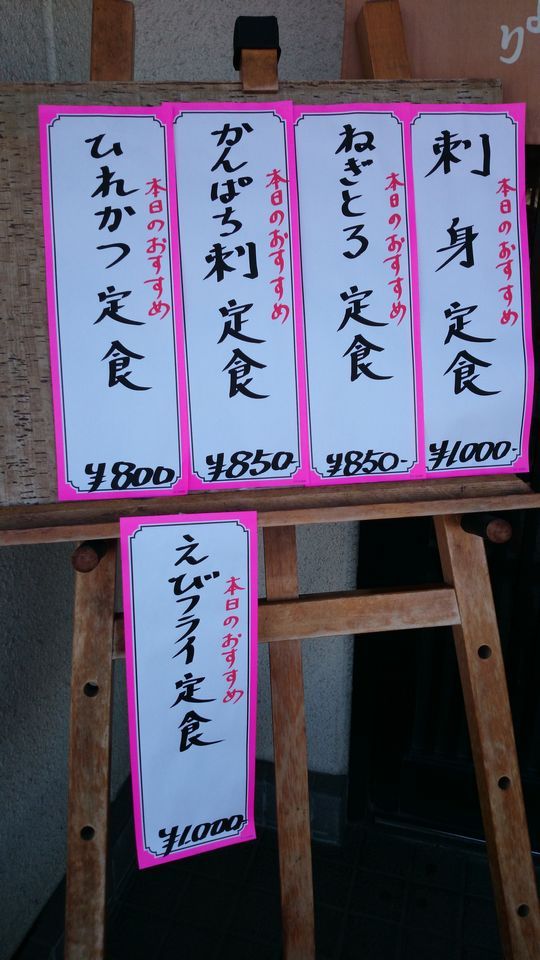 刺身定食
本日のおすすめ
¥1000-
ねぎとろ定食
本日のおすすめ
¥850-
かんぱち刺定食
本日のおすすめ
¥850-
ひれかつ定食
本日のおすすめ
¥800
えびフライ定食
本日のおすすめ
¥1,000-